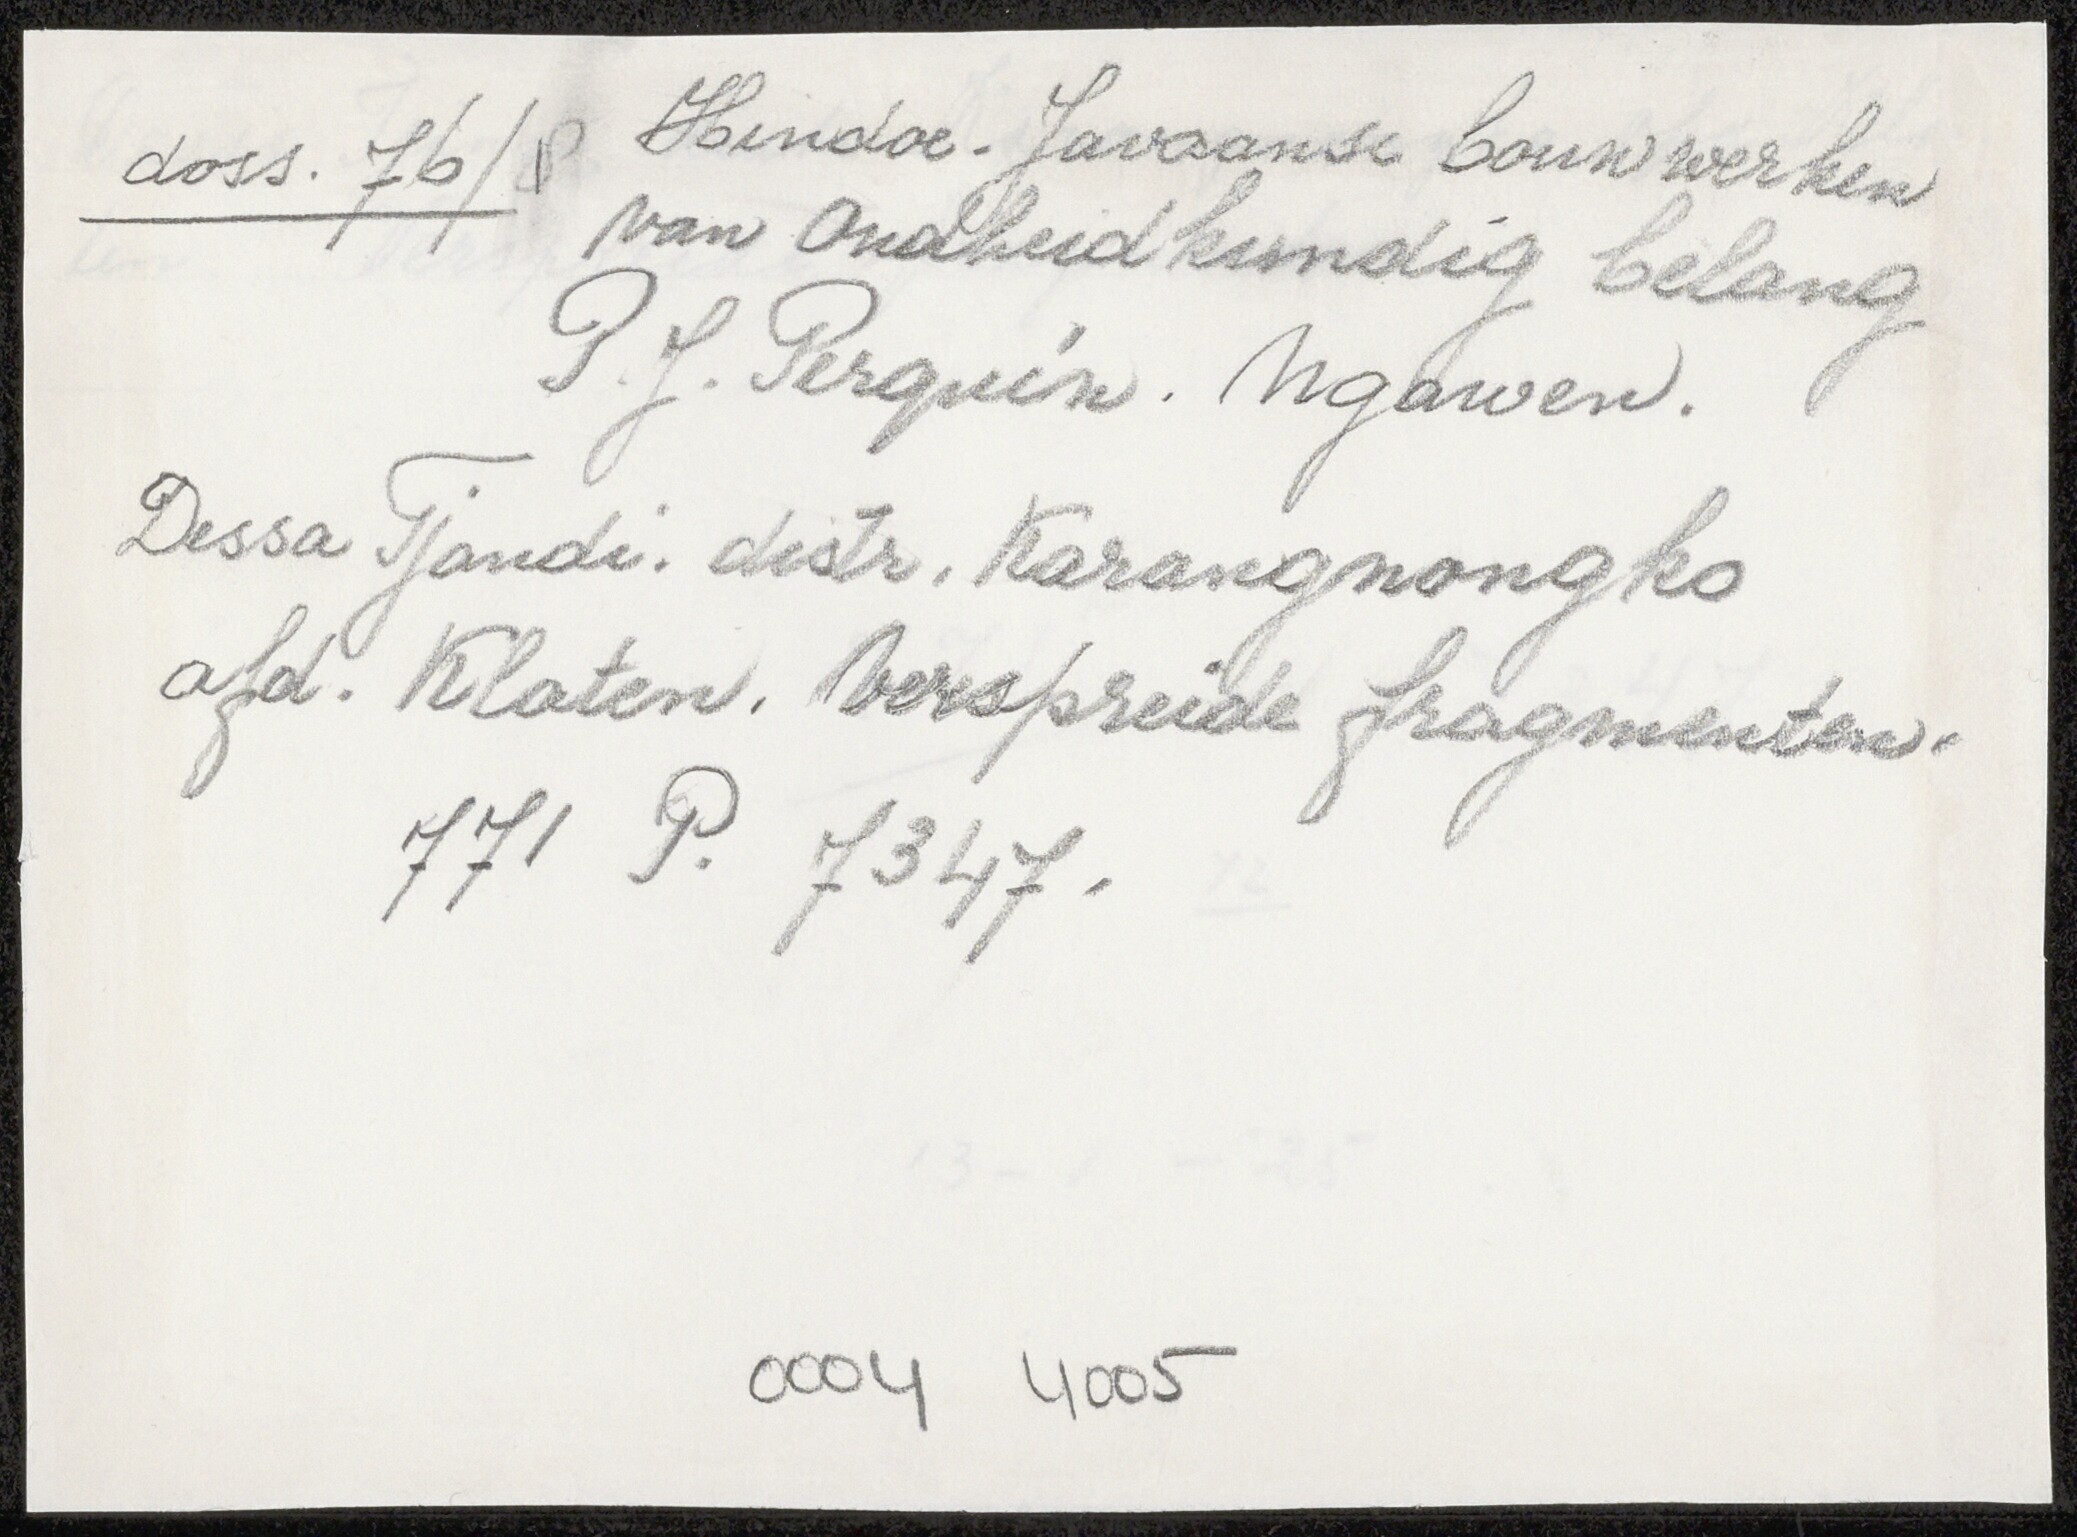 doss. 76/8 Hindoe-Javaanse bouwwerken
van Oudheidkundig belang
P. J. Perquin. Ngawen.
Dessa Tjandi. distr. Karangnongko
afd. Klaten. Verspreide fragmenten.
771 P. 7347.
0004 4005